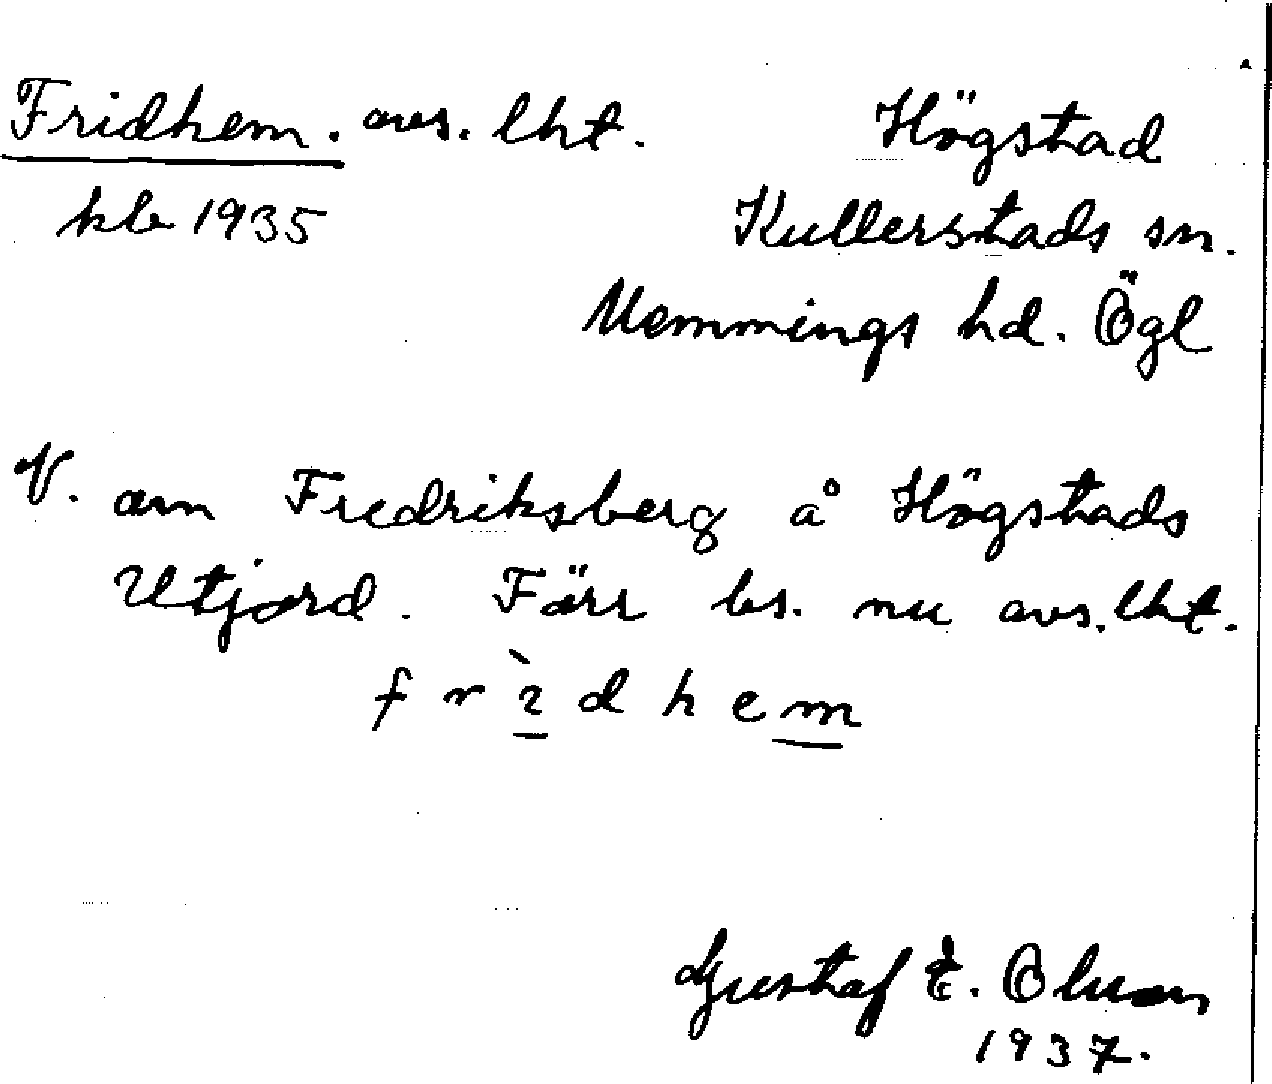 Fridhem. avs. lht. Högstad
klb 1935 Kullerstads sn.
Memmings hd. Ögl
V. om Fredriksberg å Högstads
Utjord. Förr bs. nu avs. lht.
f r ì d h e m
Gustaf E. Olson
1937.